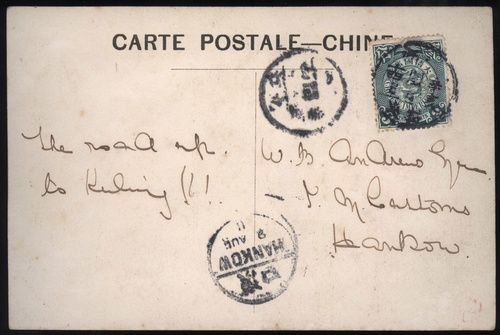 CARTE POSTALE—CHINE
The road up
to Kuling!!!
W. B. Andrews Esqre
I. M. Customs
Hankow
HANKOW
9 AUG
11
漢口